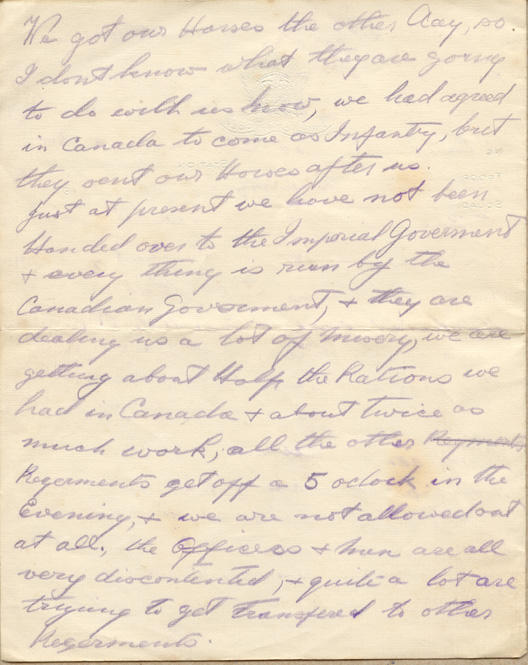 We got our Horses the other day, so
I dont know what they are going
to do with us now, we had agreed
in Canada to come as Infantry, but
they sent our Horses after us.
just at present we have not been
Handed over to the Imperial Goverment
+ every thing is run by the
Canadian Goverment, + they are
dealing us a lot of misery, we are
getting about Half the Rations we
had in Canada + about twice as
much work, all the other
Regerments get off a 5 oclock in the
Evening, + we are not allowed out
at all. the Officers + men are all
very discontented, + quite a lot are
trying to get transfered to other
Regerments.